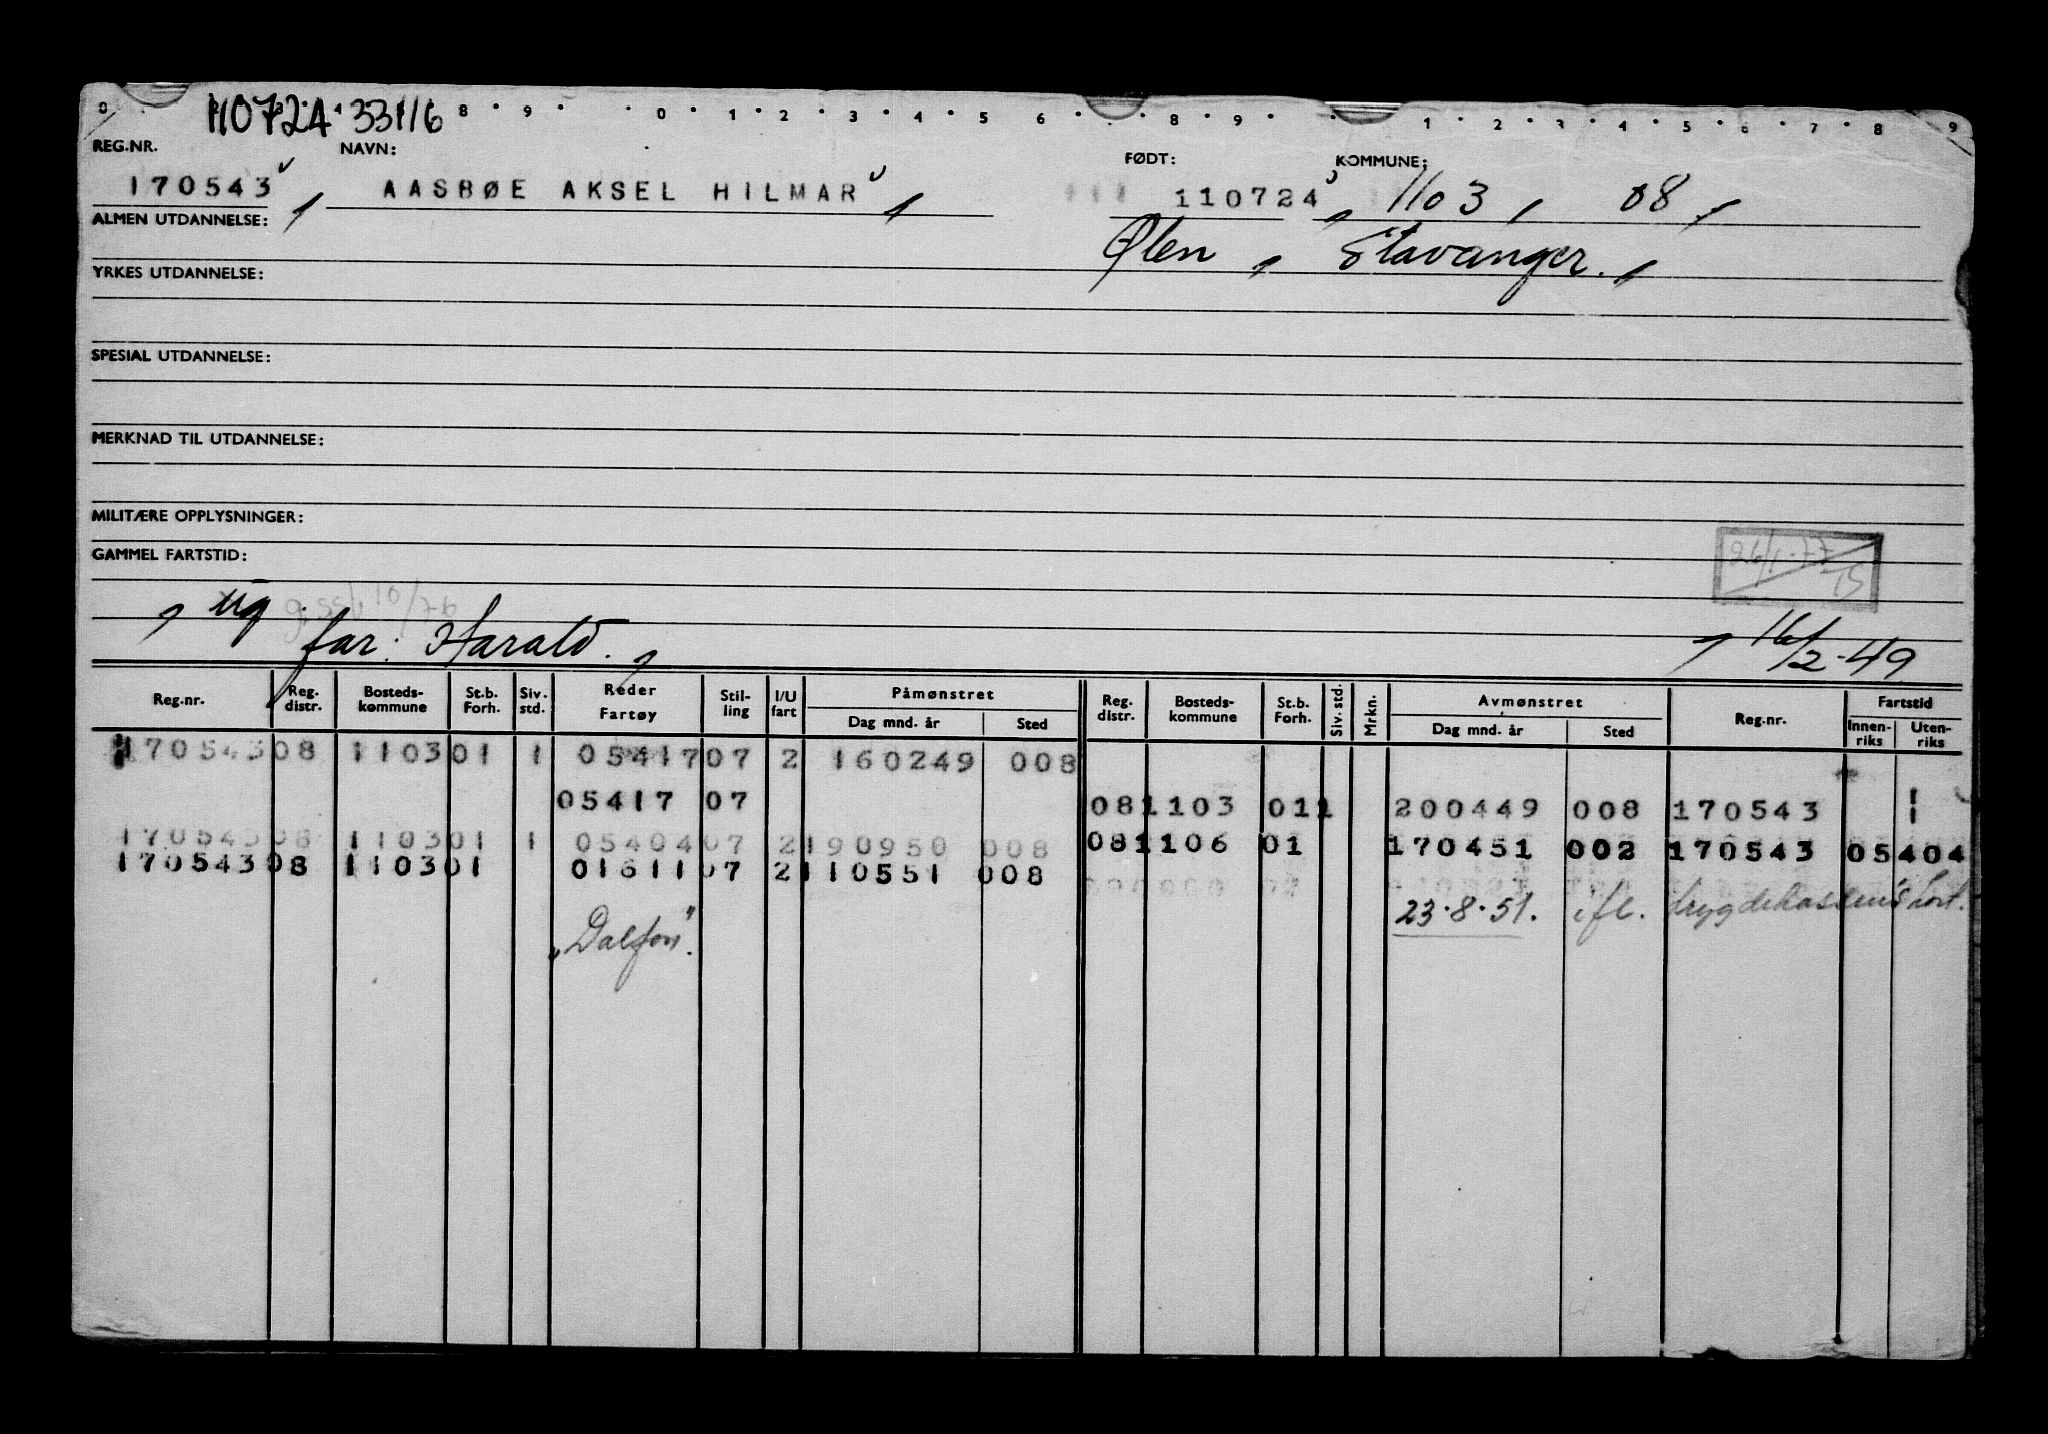 0 2 3 4 8 9 0 1 2 3 4 5 6 8 9 1 2 3 4 5 6 7 8 9
110724 33116
REG.NR. NAVN: FØDT: KOMMUNE:
170543 AASBØE AKSEL HILMAR 110724 1103 08
ALMEN UTDANNELSE: Ølen Stavanger.
YRKES UTDANNELSE:
SPESIAL UTDANNELSE:
MERKNAD TIL UTDANNELSE:
MILITÆRE OPPLYSNINGER:
GAMMEL FARTSTID:
26/1-77
ug
far: Harald. 16/2-49
Reg.nr. Reg. distr. Bosteds-kommune St.b. Forh. Siv. std. Reder Fartøy Stil-ling I/U fart Påmønstret Dag mnd. år Sted Reg. distr. Bosteds-kommune St.b. Forh. Siv. std. Mrkn. Avmønstret Dag mnd. år Sted Reg.nr. Fartstid Innen-riks Uten-riks
170543 08 1103 01 1 05417 07 2 160249 008
05417 07 08 1103 01 1 200449 008 170543 1
170543 08 1103 01 1 05404 07 2 190950 008 08 1106 01 170451 002 170543 05404
170543 08 1103 01 01611 07 2 110551 008
23.8.51. ifl. trygdekassens kort.
"Dalfon".